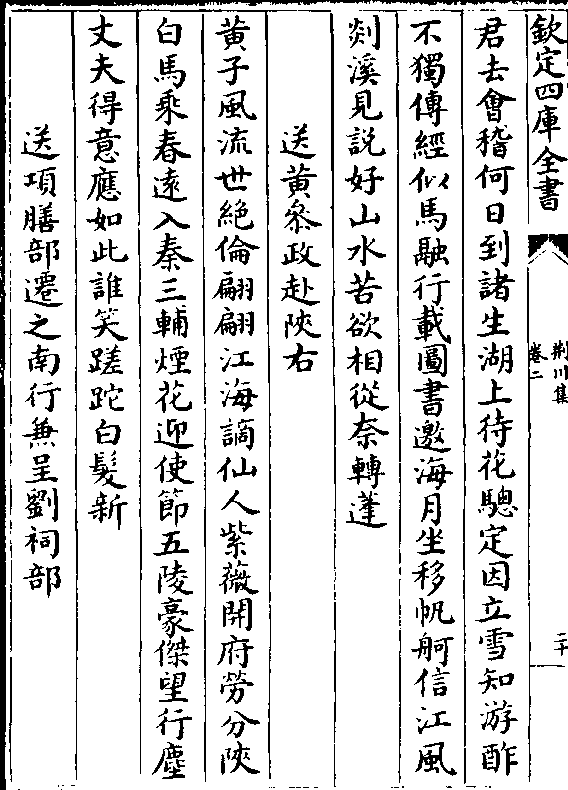 欽定四庫全書
荆川集
卷二
二十
君去會稽何日到諸生湖上待花驄定因立雪知游酢
不獨傳經似馬融行載圖書邀海月坐移帆舸信江風
剡溪見說好山水苦欲相從奈轉蓬
送黄叅政赴陜右
黄子風流世絶倫翩翩江海謫仙人紫薇開府勞分陜
白馬乘春遠入秦三輔煙花迎使節五陵豪傑望行塵
丈夫得意應如此誰笑蹉跎白髪新
送項膳部遷之南行兼呈劉祠部